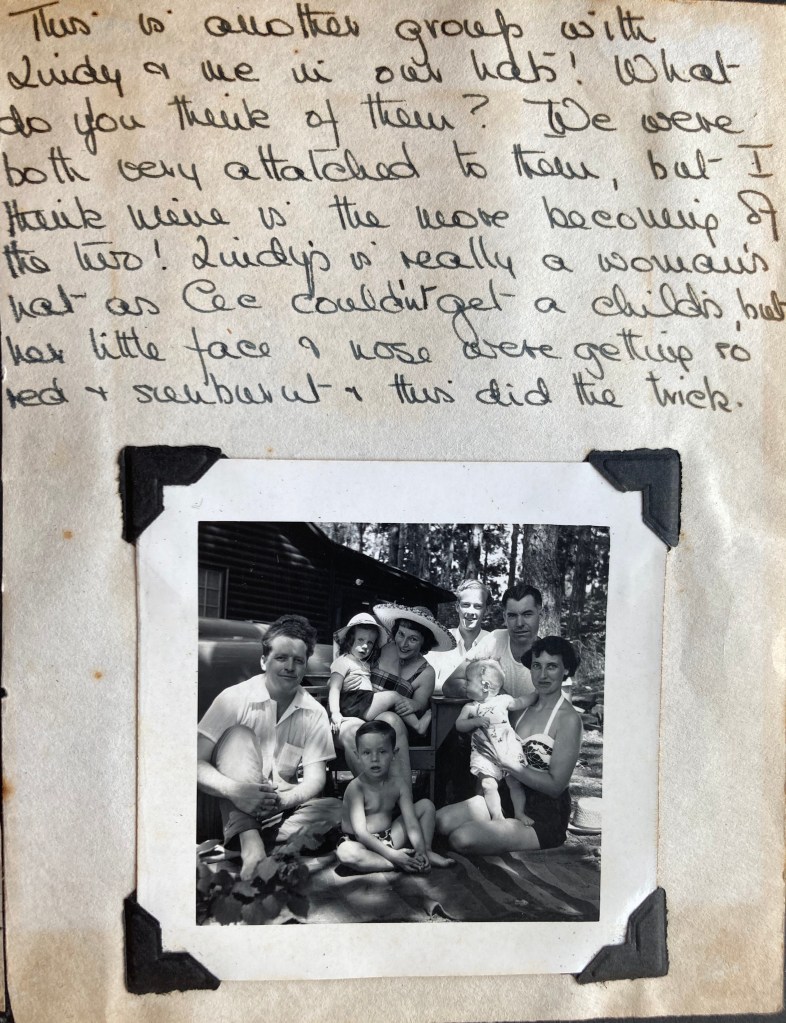 This is another group with
Lindy & me in our hats! What
do you think of them? We were
both very attatched to them, but I
think mine is the more becoming of
the two! Lindy's is really a woman's
hat as Cec couldn't get a child's, but
her little face & nose were getting so
red & sunburnt & this did the trick.